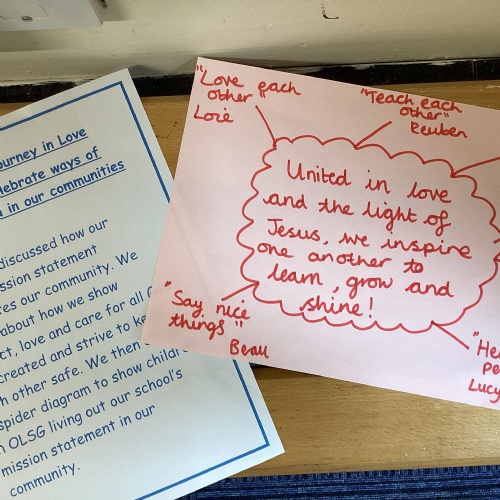 ourney in Love
lebrate ways of
in our communities
discussed how our
ission statement
tes our community. We
about how we show
ct, love and care for all
created and strive to ke
ch other safe. We then
spider diagram to show childr
n OLSG living out our school's
mission statement in our
community.
"Love each
other"
Lore
"Teach each
other"
Reuben
United in love
and the light of
Jesus, we inspire
one another to
learn, grow and
shine!
"Say nice
things"
Beau
"He
pe
Lucy